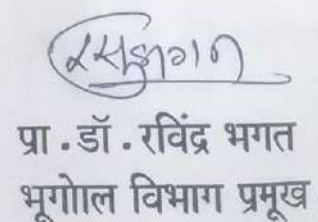 प्रा.डॉ.रविंद्र भगत
भूगोाल विभाग प्रमूख